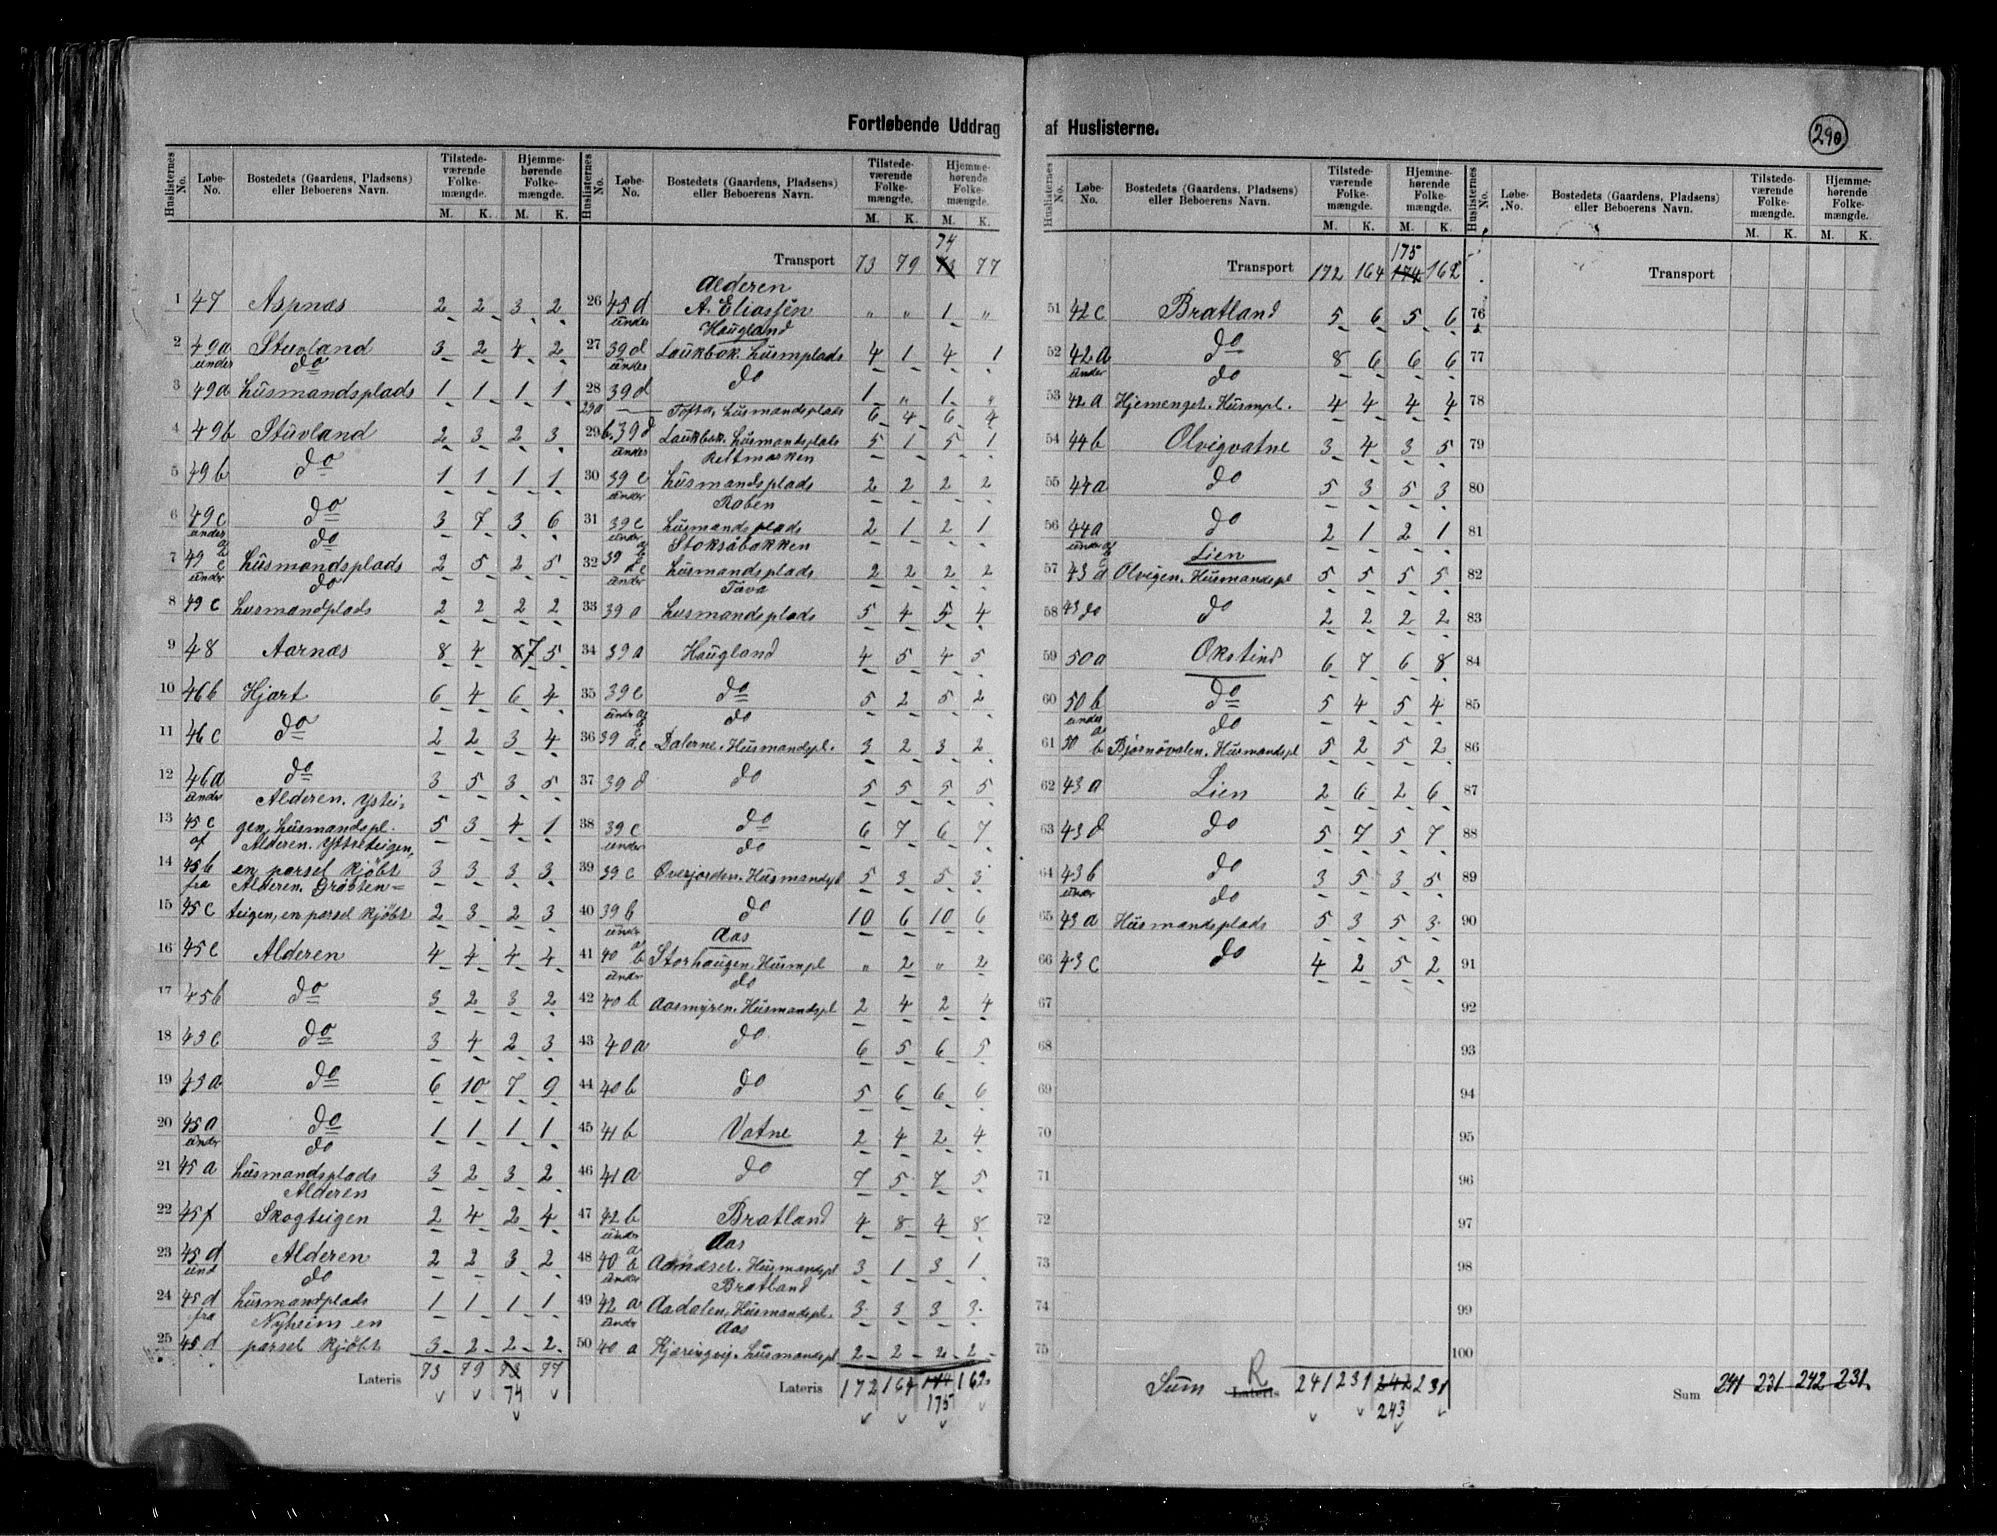 Fortløbende Uddrag af Huslisterne.
290
Huslisternes No. Løbe-No. Bostedets (Gaardens, Pladsens) eller Beboerens Navn. Tilstede-værende Folke-mængde. Hjemme-hørende Folke-mængde.
M. K. M. K.
1 47 Aspnæs 2 2 3 2
2 49a Stuvland 3 2 4 2
under do
3 49a husmandsplads 1 1 1 1
4 49b Stuvland 2 3 2 3
5 49b do 1 1 1 1
6 49c do 3 7 3 6
under do
7 49 a b c husmandsplads 2 5 2 5
under do
8 49c husmandplads 2 2 2 2
9 48 Aarnæs 8 4 7 5
10 46b Hjart 6 4 6 4
11 46c do 2 2 3 4
12 46a do 3 5 3 5
under Alderen. Ystei-
13 45c gen, husmandspl. 5 3 4 1
af Alderen. Ytreteigen,
14 45b en parsel kjøbt 3 3 3 3
fra Alderen. Grøften=
15 45c teigen, en parsel kjøbt 2 3 2 3
16 45e Alderen 4 4 4 4
17 45b do 3 2 3 2
18 43c do 3 4 2 3
19 43a do 6 10 7 9
20 45a do 1 1 1 1
under do
21 45a husmandsplads 3 2 3 2
Alderen
22 45f Skogteigen 2 4 2 4
23 45d Alderen 2 2 3 2
und do
24 45d husmandplads 1 1 1 1
fra Nyheim en
25 45d parsel kjøbt 3 2 2 2
Lateris 73 79 73 77
74
Huslisternes No. Løbe-No. Bostedets (Gaardens, Pladsens) eller Beboerens Navn. Tilstede-værende Folke-mængde. Hjemme-hørende Folke-mængde.
M. K. M. K.
74
Transport 73 79 73 77
Alderen
26 45d A. Eliassen " " 1 "
under Haugland
27 39d Laukbak. husmplads 4 1 4 1
under do
28 39d 1 " 1 "
29a Tofta, husmandsplads 6 4 6 4
29 b. 39d Laukbak. husmandsplads 5 1 5 1
under Reitmarken
30 39c husmandsplads 2 2 2 2
under Raben
31 39c husmandsplads 2 1 2 1
under Stoksåbakken
32 39 husmandsplads 2 2 2 2
under Tuva
33 39a husmandsplads 5 4 5 4
34 39a Haugland 4 5 4 5
35 39c do 5 2 5 2
under do
36 39 Dalerne. Husmandspl. 3 2 3 2
37 39d do 5 5 5 5
38 39c do 6 7 6 7
under do
39 39c Øverjorden. Husmandspl 5 3 5 3
40 39b do 10 6 10 6
under Aas
41 40 a b Storhaugen, Husmpl " 2 " 2
under do
42 40b Aasmyren. Husmandspl 2 4 2 4
43 40a do 6 5 6 5
44 40b do 5 6 6 6
45 41b Vatne 2 4 2 4
46 41a do 7 5 7 5
47 42b Bratland 4 8 4 8
under Aas
48 40 a b Husmandspl 3 1 3 1
under Bratland
49 42a Aadalen, Husmandspl. 3 3 3 3
under Aas
50 40a Kjæringvig. husmandspl 2 2 2 2
Lateris 172 164 174 162
175
Huslisternes No. Løbe-No. Bostedets (Gaardens, Pladsens) eller Beboerens Navn. Tilstede-værende Folke-mængde. Hjemme-hørende Folke-mængde.
M. K. M. K.
175
Transport 172 164 174 162
51 42c Bratland 5 6 5 6
52 42a do 8 6 6 6
under do
53 42a Hjemenget. Husmpl. 4 4 4 4
54 44b Olvigvatne 3 4 3 5
55 44a do 5 3 5 3
56 44a do 2 1 2 1
under Lien
57 43 Olvigen. Husmandspl 5 5 5 5
58 43 do do 2 2 2 2
59 50a Okstind 6 7 6 8
60 50b do 5 4 5 4
under do
61 50 a b Bjørnövalen. Husmandspl 5 2 5 2
62 43a Lien 2 6 2 6
63 43d do 5 7 5 7
64 43b do 3 5 3 5
under do
65 43a Husmandsplads 5 3 5 3
66 43c do 4 2 5 2
67
68
69
70
71
72
73
74
75
Sum R Lateris 241 231 242 231
243
Huslisternes No. Løbe-No. Bostedets (Gaardens, Pladsens) eller Beboerens Navn. Tilstede-værende Folke-mængde. Hjemme-hørende Folke-mængde.
M. K. M. K.
Transport
76
77
78
79
80
81
82
83
84
85
86
87
88
89
90
91
92
93
94
95
96
97
98
99
100
Sum 241 231 242 231